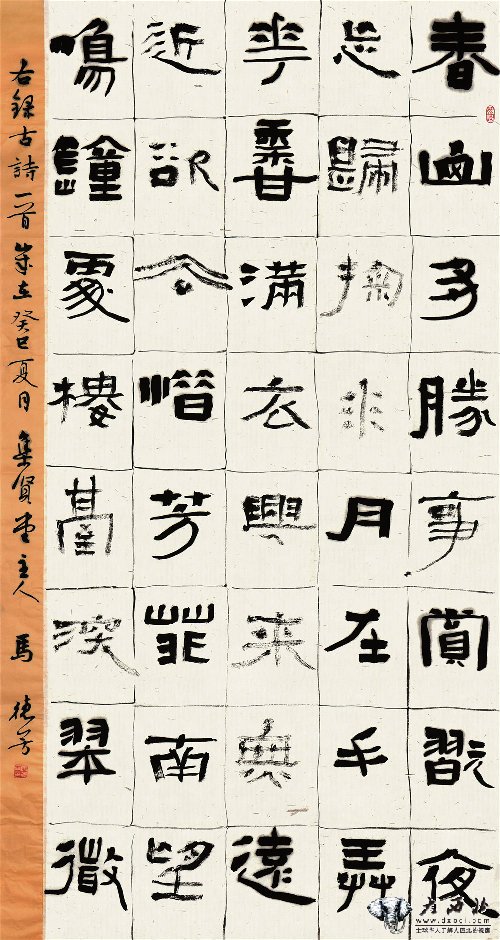 春山多勝事賞翫夜
忘歸掬水月在手弄
花香滿衣興來無遠
近欲去惜芳菲南望
鳴鐘處樓臺深翠微
右錄古詩一首歲在癸巳夏月集賢堂主人馬